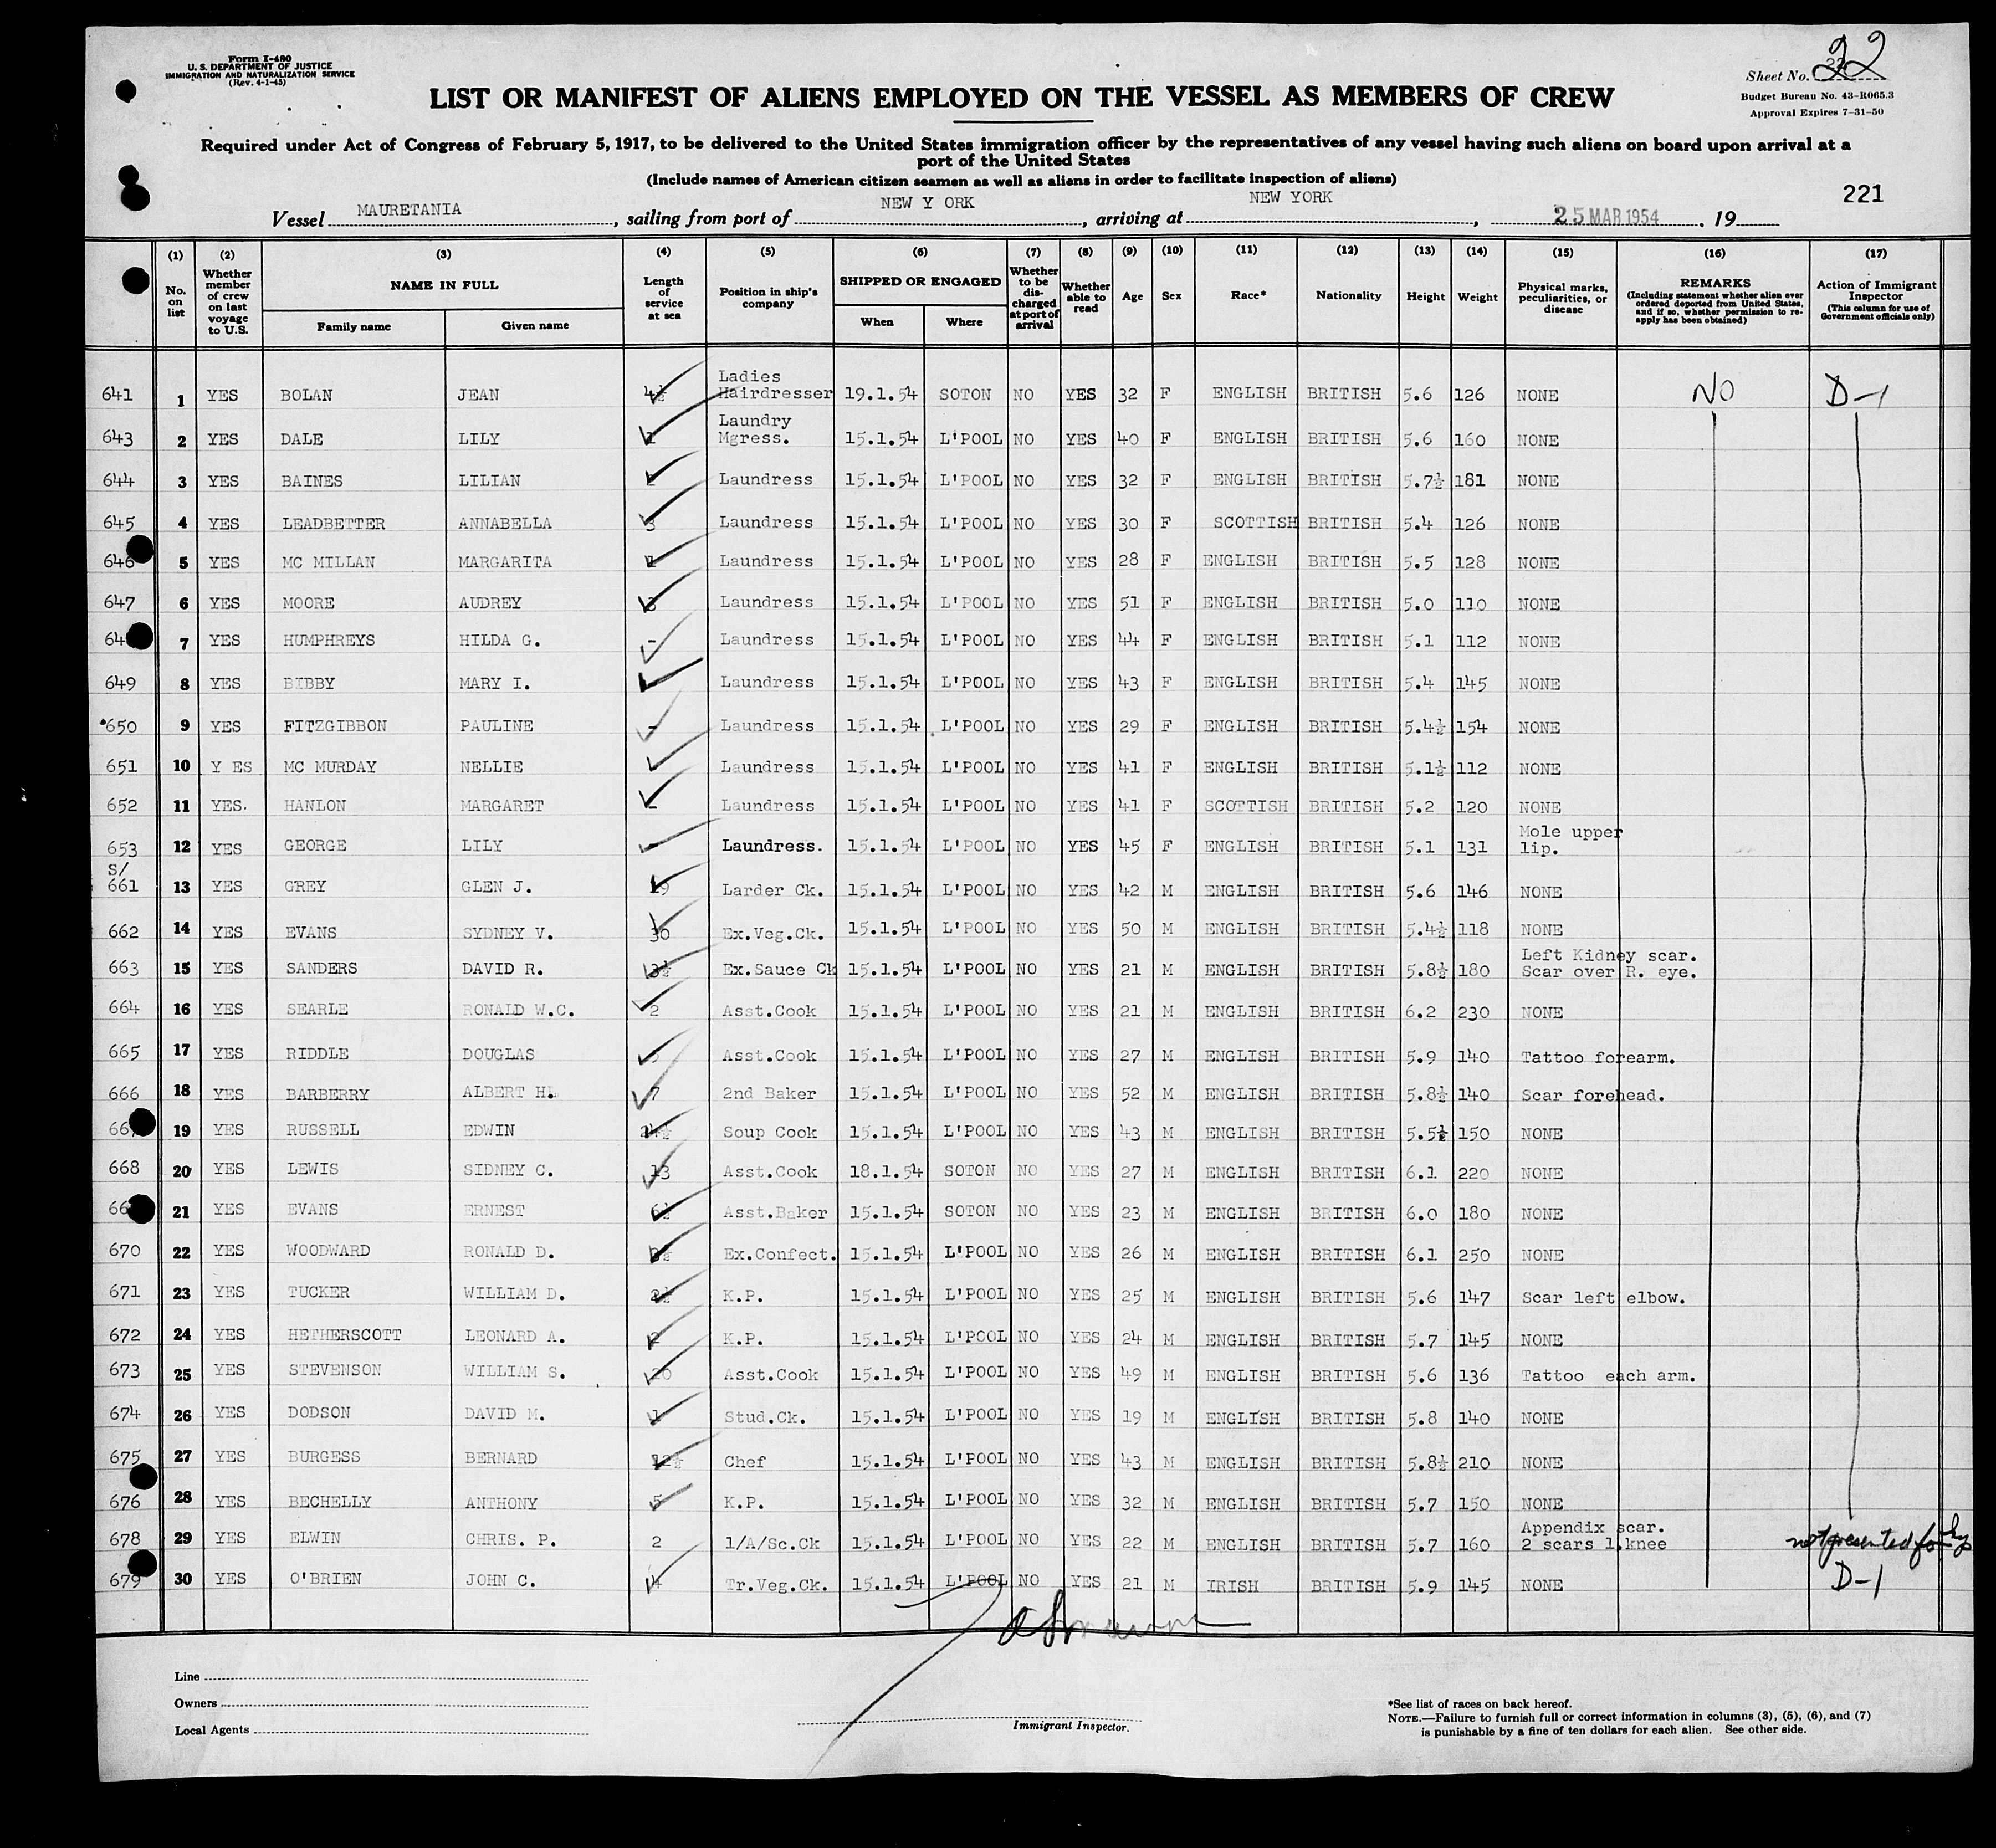 Form I-480
U. S. DEPARTMENT OF JUSTICE
IMMIGRATION AND NATURALIZATION SERVICE
(Rev. 4-1-45)
Sheet No. 22
Budget Bureau No. 43-R065.3
Approval Expires 7-31-50
LIST OR MANIFEST OF ALIENS EMPLOYED ON THE VESSEL AS MEMBERS OF CREW
Required under Act of Congress of February 5, 1917, to be delivered to the United States immigration officer by the representatives of any vessel having such aliens on board upon arrival at a
port of the United States
(Include names of American citizen seamen as well as aliens in order to facilitate inspection of aliens)
221
Vessel MAURETANIA, sailing from port of NEW Y ORK, arriving at NEW YORK, 25 MAR 1954. 19
(1) No. on list
(2) Whether member of crew on last voyage to U.S.
(3) NAME IN FULL Family name Given name
(4) Length of service at sea
(5) Position in ship's company
(6) SHIPPED OR ENGAGED When Where
(7) Whether to be discharged at port of arrival
(8) Whether able to read
(9) Age
(10) Sex
(11) Race*
(12) Nationality
(13) Height
(14) Weight
(15) Physical marks, peculiarities, or disease
(16) REMARKS (Including statement whether alien ever ordered deported from United States, and if so, whether permission to re-apply has been obtained)
(17) Action of Immigrant Inspector (This column for use of Government officials only)
641 1 YES BOLAN JEAN 4½ Ladies Hairdresser 19.1.54 SOTON NO YES 32 F ENGLISH BRITISH 5.6 126 NONE NO D-1
643 2 YES DALE LILY Laundry Mgress. 15.1.54 L'POOL NO YES 40 F ENGLISH BRITISH 5.6 160 NONE
644 3 YES BAINES LILIAN Laundress 15.1.54 L'POOL NO YES 32 F ENGLISH BRITISH 5.7½ 181 NONE
645 4 YES LEADBETTER ANNABELLA 3 Laundress 15.1.54 L'POOL NO YES 30 F SCOTTISH BRITISH 5.4 126 NONE
646 5 YES MC MILLAN MARGARITA Laundress 15.1.54 L'POOL NO YES 28 F ENGLISH BRITISH 5.5 128 NONE
647 6 YES MOORE AUDREY 3 Laundress 15.1.54 L'POOL NO YES 51 F ENGLISH BRITISH 5.0 110 NONE
64 7 YES HUMPHREYS HILDA G. - Laundress 15.1.54 L'POOL NO YES 44 F ENGLISH BRITISH 5.1 112 NONE
649 8 YES BIBBY MARY I. - Laundress 15.1.54 L'POOL NO YES 43 F ENGLISH BRITISH 5.4 145 NONE
650 9 YES FITZGIBBON PAULINE - Laundress 15.1.54 L'POOL NO YES 29 F ENGLISH BRITISH 5.4½ 154 NONE
651 10 Y ES MC MURDAY NELLIE Laundress 15.1.54 L'POOL NO YES 41 F ENGLISH BRITISH 5.1½ 112 NONE
652 11 YES. HANLON MARGARET - Laundress 15.1.54 L'POOL NO YES 41 F SCOTTISH BRITISH 5.2 120 NONE
653 12 YES GEORGE LILY - Laundress. 15.1.54 L'POOL NO YES 45 F ENGLISH BRITISH 5.1 131 Mole upper lip.
S/
661 13 YES GREY GLEN J. 19 Larder Ck. 15.1.54 L'POOL NO YES 42 M ENGLISH BRITISH 5.6 146 NONE
662 14 YES EVANS SYDNEY V. 30 Ex.Veg.Ck. 15.1.54 L'POOL NO YES 50 M ENGLISH BRITISH 5.4½ 118 NONE
663 15 YES SANDERS DAVID R. 3½ Ex.Sauce Ck 15.1.54 L'POOL NO YES 21 M ENGLISH BRITISH 5.8½ 180 Left Kidney scar. Scar over R. eye.
664 16 YES SEARLE RONALD W.C. 2 Asst.Cook 15.1.54 L'POOL NO YES 21 M ENGLISH BRITISH 6.2 230 NONE
665 17 YES RIDDLE DOUGLAS Asst.Cook 15.1.54 L'POOL NO YES 27 M ENGLISH BRITISH 5.9 140 Tattoo forearm.
666 18 YES BARBERRY ALBERT H. 7 2nd Baker 15.1.54 L'POOL NO YES 52 M ENGLISH BRITISH 5.8½ 140 Scar forehead.
66 19 YES RUSSELL EDWIN Soup Cook 15.1.54 L'POOL NO YES 43 M ENGLISH BRITISH 5.5½ 150 NONE
668 20 YES LEWIS SIDNEY C. 13 Asst.Cook 18.1.54 SOTON NO YES 27 M ENGLISH BRITISH 6.1 220 NONE
66 21 YES EVANS ERNEST 6½ Asst.Baker 15.1.54 SOTON NO YES 23 M ENGLISH BRITISH 6.0 180 NONE
670 22 YES WOODWARD RONALD D. Ex.Confect. 15.1.54 L'POOL NO YES 26 M ENGLISH BRITISH 6.1 250 NONE
671 23 YES TUCKER WILLIAM D. 2½ K.P. 15.1.54 L'POOL NO YES 25 M ENGLISH BRITISH 5.6 147 Scar left elbow.
672 24 YES HETHERSCOTT LEONARD A. 2 K.P. 15.1.54 L'POOL NO YES 24 M ENGLISH BRITISH 5.7 145 NONE
673 25 YES STEVENSON WILLIAM S. 20 Asst.Cook 15.1.54 L'POOL NO YES 49 M ENGLISH BRITISH 5.6 136 Tattoo each arm.
674 26 YES DODSON DAVID M. 1 Stud.Ck. 15.1.54 L'POOL NO YES 19 M ENGLISH BRITISH 5.8 140 NONE
675 27 YES BURGESS BERNARD 12½ Chef 15.1.54 L'POOL NO YES 43 M ENGLISH BRITISH 5.8½ 210 NONE
676 28 YES BECHELLY ANTHONY 5 K.P. 15.1.54 L'POOL NO YES 32 M ENGLISH BRITISH 5.7 150 NONE
678 29 YES ELWIN CHRIS. P. 2 1/A/Sc.Ck 15.1.54 L'POOL NO YES 22 M ENGLISH BRITISH 5.7 160 Appendix scar. 2 scars l.knee not presented for
679 30 YES O'BRIEN JOHN C. 4 Tr.Veg.Ck. 15.1.54 L'POOL NO YES 21 M IRISH BRITISH 5.9 145 NONE D-1
Line
Owners
Local Agents
Immigrant Inspector.
*See list of races on back hereof.
NOTE.—Failure to furnish full or correct information in columns (3), (5), (6), and (7)
is punishable by a fine of ten dollars for each alien. See other side.